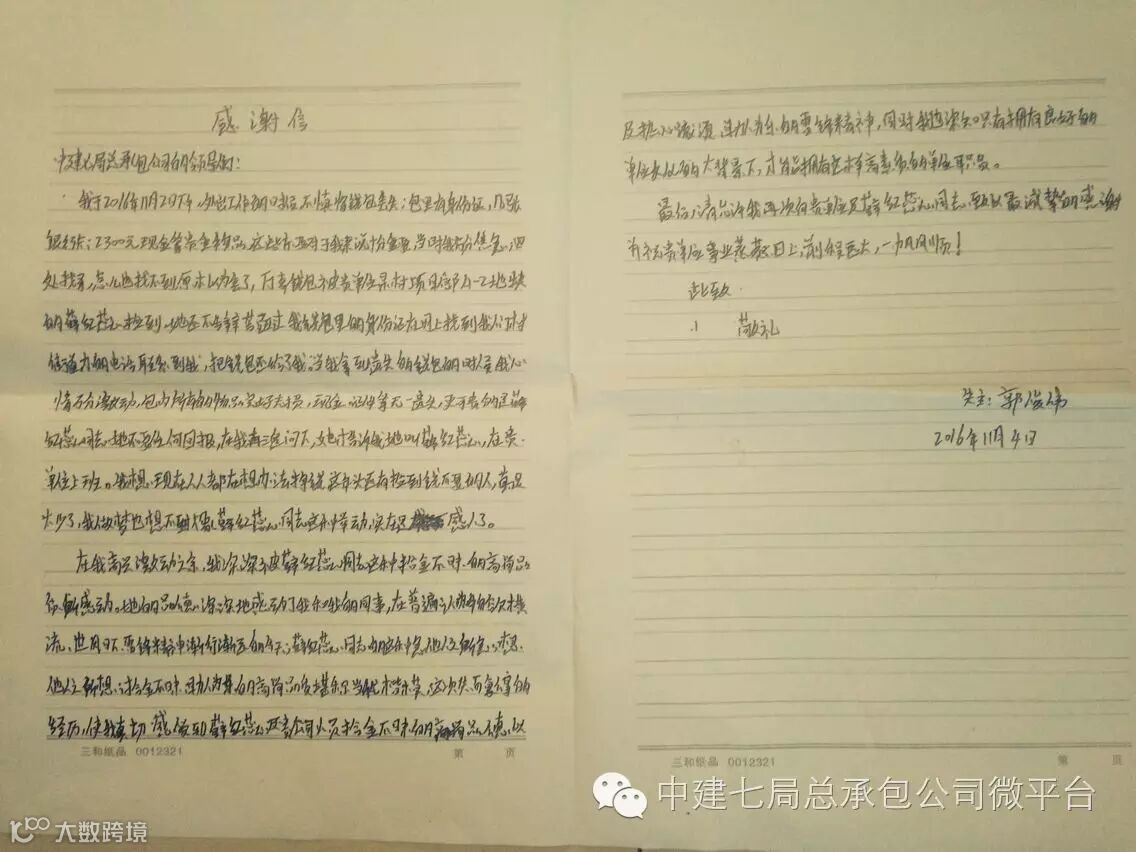 感谢信
中建七局总承包公司的领导们：
我于2016年11月2日下午，外出工作的时候不慎将钱包丢失；包里有身份证，几张
银行卡；2300元现金等贵重物品，这些东西对于我来说十分重要，当时我十分焦急，四
处找寻，怎么也找不到原本以为丢了，万幸钱包被贵单位
的薛红蕊捡到。她还不辞辛苦通过我钱包里的身份证在网上找到我们村
的电话联系到我，把钱包还给了我。当我拿到遗失的钱包的时候我心
情万分激动，包内所有的物品完好无损，现金、证件等无一遗失，更可贵的是薛
红蕊同志她不要任何回报，在我再三追问下，她才告诉我她叫薛红蕊，在贵
单位上班。我想：现在人人都在想办法挣钱这年头还有捡到钱不要的人，真是
太少了，我做梦也想不到薛红蕊同志这样举动，实在是感人了。
在我高兴激动之余，我深深被薛红蕊同志这种拾金不昧的高尚品
质所感动。她的品德深深地感动了我和我的同事，在普遍认为物欲横
流、世风日下、雷锋精神渐行渐远的今天，薛红蕊同志的这种急他人之所急，想
他人之所想、拾金不昧、助人为乐的高尚品质堪称当代楷模。这次失而复得的
经历，使我真切感受到薛红蕊及贵公司人员拾金不昧的高尚品德，以
及热心诚恳、助人为乐的雷锋精神，同时我也深知只有拥有良好的
单位文化的大背景下，才能拥有这样高素质的单位职员。
最后，请允许我再次向贵单位及薛红蕊同志，致以最诚挚的感谢
并祝贵单位事业蒸蒸日上，前程远大，一帆风顺！
此致
敬礼
失主：郭俊伟
2016年11月4日
三和纸品 0012321 第 页
三和纸品 0012321 第 页
中建七局总承包公司微平台
大数跨境